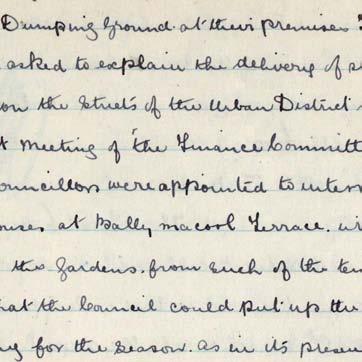 Dumping Ground at their premises
asked to explain the delivery of
on the Streets of the Urban District
Meeting of the Finance Committ
ouncillors were appointed to inter
ouses at Ballymacool Terrace.
the Gardens. from such of the ten
hat the Council could put up the
g for the Season. as in its presen